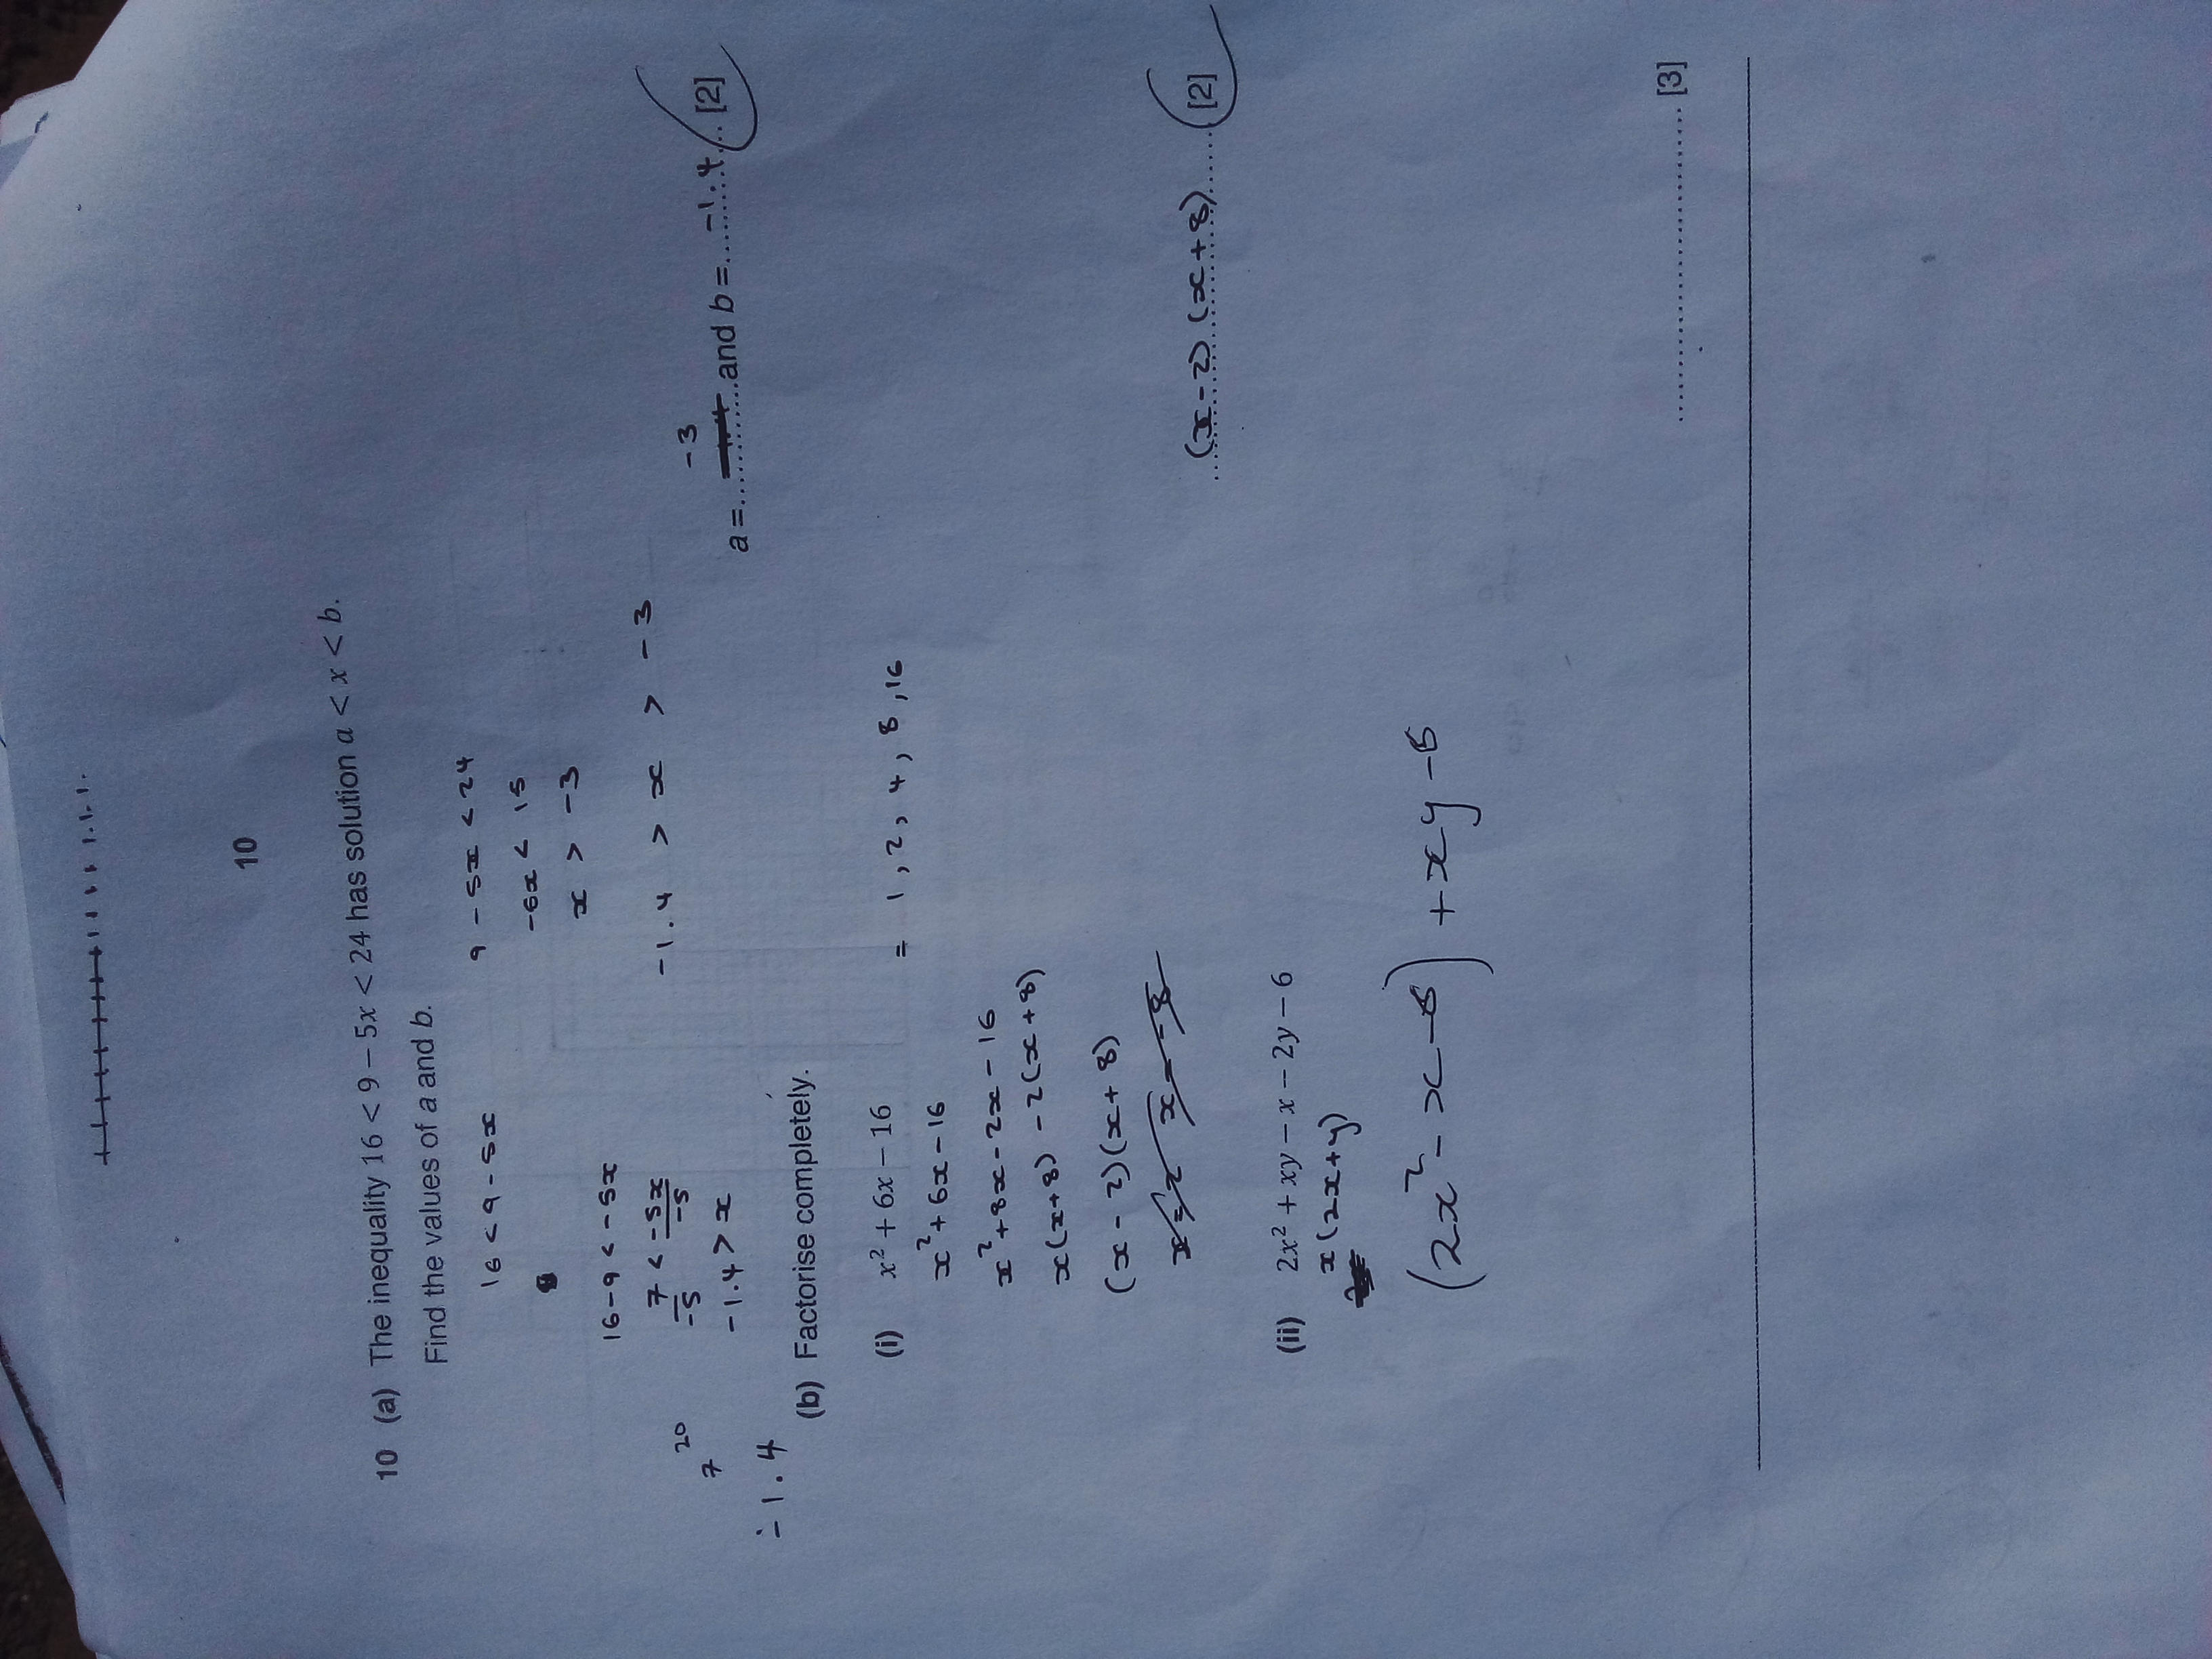 10
10 (a) The inequality 16 < 9 – 5x < 24 has solution a < x < b.
Find the values of a and b.
16 < 9 - 5x
9 - 5x < 24
-5x < 15
x > -3
16-9 < -5x
7 < -5x
-5 -5
-1.4 > x
-1.4 > x > -3
7 20
-1.4
-3
a =............and b =....-1.4.... [2]
(b) Factorise completely.
(i) x² + 6x – 16
= 1, 2, 4, 8, 16
x² + 6x - 16
x² + 8x - 2x - 16
x(x+8) - 2(x+8)
(x - 2)(x + 8)
x = 2 x = -8
(x-2) (x+8) [2]
(ii) 2x² + xy – x – 2y – 6
x(2x+y)
(2x² - x - 6) + xy - 6
............................ [3]